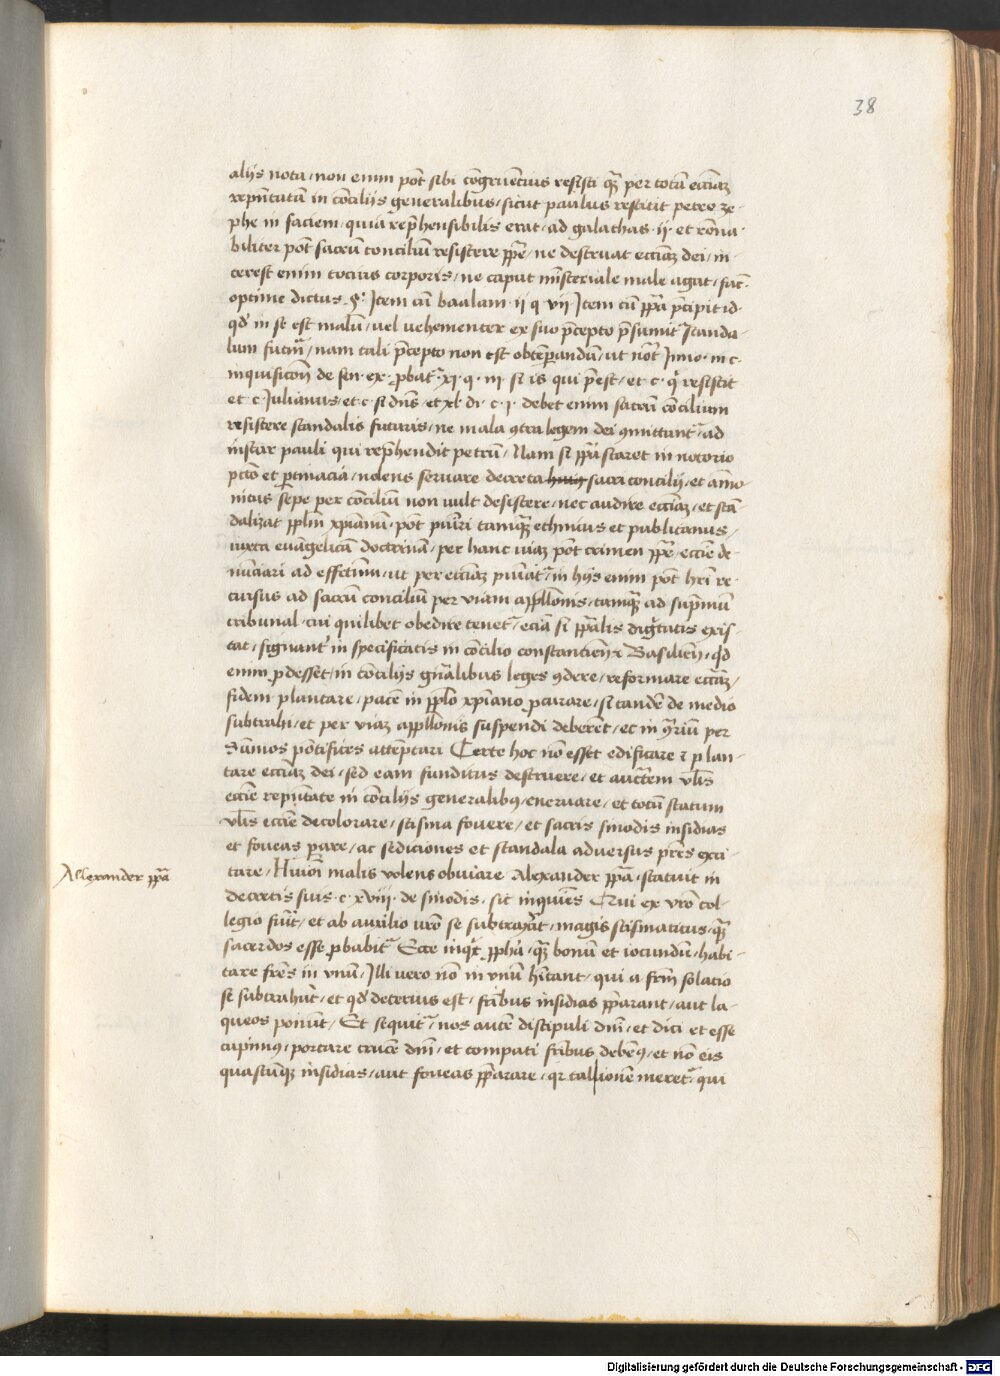 38
alijs nota / non enim pōt sibi cōgruēcius resisti qȝ per totā ecciāȝ
repn̄tatā in cōcilijs generalibus / sicut paulus restitit petro ze-
phe in faciem / quia rep̄hensibilis erat / ad galathas · ii · et rōna-
biliter pōt sacrū concilium resistere pp̄e / ne destruat ecciāȝ dei / in-
terest enim tocius corporis / ne caput mīsteriale male agat / fac̄-
optime dictus · §· Item cū baalam · ii q vii · Item cū pp̄a p̄cipit id ·
qd̄ in se est malū / uel vehementer ex suo p̄cepto p̄sumit᷑ scanda-
lum futur̄ / nam tali p̄cepto non est obtēperandū / ut not̄ Inno · in c ·
inquisicōi de sen · ex · probat᷑ xi · q · iii · si is qui p̄est / et c · qͥ resistit
et c · Julianus / et c · si dn̄s / et xl · di · c · i · debet enim sacrū cōcilium
resistere scandalis futuris / ne mala ꝯtra legem dei ꝯmittant᷑ / ad
instar pauli qui rep̄hendit petrū / Nam si pp̄a staret in notorio
pctō et ꝑtinacia / nolens seruare decreta huiꝰ sacri concilij / et amo-
nitus sepe per cōcilium non vult desistere / nec audire ecciāȝ / et scā-
dalizat pplm̄ xp̄ianū / pōt puīri tamqȝ ethnicus et publicanus /
iuxta euāgelicā doctrinā / per hanc uiaȝ pōt crimen pp̄e / eccie de-
nūciari ad effectum / ut per ecciāȝ puīat᷑ / in hijs enim pōt hr̄i re-
cursus ad sacrū concilium per viam appllōnis / tamqȝ ad sup̄mū
tribunal / cui quilibet obedire tenet᷑ / eciā si pp̄alis dig̅tatis exis-
tat / signant᷑ in specificatis in cōcilio constancien̄ ⁊ Basilien̄ / qd̄
enim ꝓdesset / in cōcilijs gn̄alibus leges ꝯdere / reformare ecciāȝ /
fidem plantare / pacē in pplo xp̄iano ꝓcurare / si tandē de medio
subtrahi / et per viaȝ appllōnis suspendi deberēt / et in ꝯriū per
Sūmos pōtifices attēptari Certe hoc nō esset edificare ⁊ plan-
tare ecciāȝ dei / sed eam funditus destruere / et auctem vlis
eccie repn̄tate in cōcilijs generalibꝰ / eneruare / et totū statum
vlis eccie decolorare / scisma fouere / et sacris sinodis insidias
et foueas ꝑare / ac sediciones et scandala aduersus p̄res exci-
tare / Huiōi malis volens obuiare Alexander pp̄a / statuit in
decretis suis · c · xviii · de sinodis · sic inquiēs Qui ex vr̄o col-
legio fuīt / et ab auxilio vr̄o se subtraxīt / magis scismaticus / qȝ
sacerdos esse ꝓbabit᷑ Ecce inqͥt ppha / qȝ bonū et iocundū / habi-
tare fr̄es in vnū / Illi vero nō in vnū hītant / qui a frm̄ solacio
se subtrahūt / et qd̄ deterius est / fr̄ibus insidias pp̄arant / aut la-
queos ponūt / Et sequit᷑ / nos autē discipuli dn̄i / et dici et esse
cupimꝰ / portare crucē dn̄i / et compati fr̄ibus debemꝰ / et nō eis
quascūqȝ insidias / aut foueas pp̄arare / qr tallionē meret᷑ · qui
Allexander pp̄a
Digitalisierung gefördert durch die Deutsche Forschungsgemeinschaft - DFG